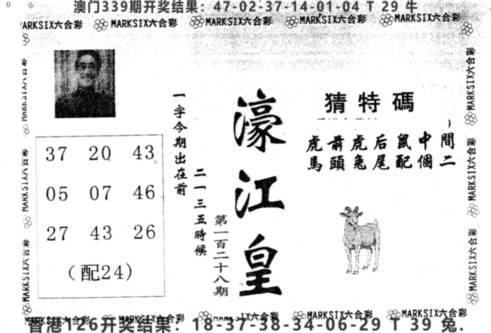 澳门339期开奖结果：47-02-37-14-01-04 T 29 牛
MARKSIX六合彩 MARKSIX六合彩 MARKSIX六合彩 MARKSIX六合彩 MARKSIX六合彩
37 20 43
05 07 46
27 43 26
（配24）
一字今期出在前
二一三五時候
濠江皇
第一百二十八期
猜特碼
虎前虎后鼠中間
馬頭兔尾配個二
MARKSIX六合彩 MARKSIX六合彩 MARKSIX六合彩 MARKSIX六合彩
香港126开奖结果：18-37-38-34-06-29 T 39 兔.